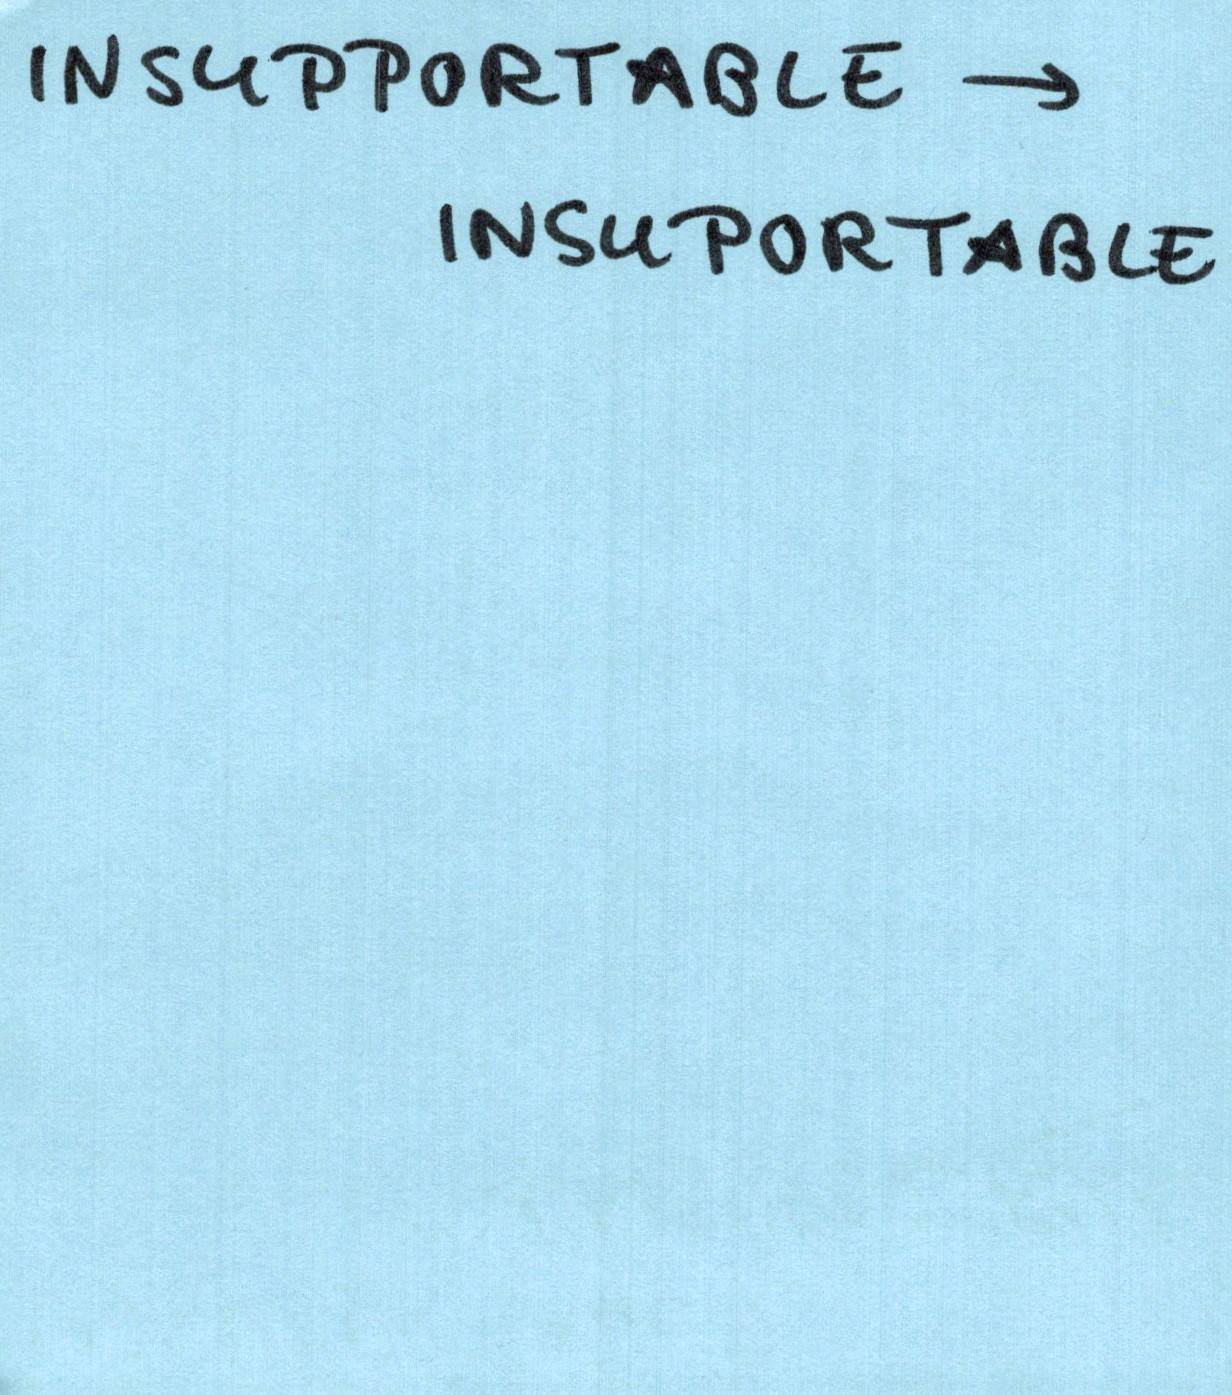 INSUPPORTABLE →
INSUPORTABLE